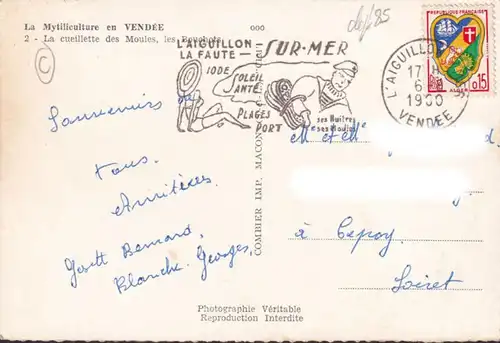 La Mytiliculture en VENDÉE
2 - La cueillette des Moules, les Bouchots
000
C
L'AIGUILLON
LA FAUTE
SUR-MER
IODE
SOLEIL
SANTÉ
PLAGES
PORT
ses Huîtres
ses Moules
L'AIGUILLON
17 H
6
1960
VENDÉE
REPUBLIQUE FRANÇAISE
0,15
ALGER
Souvenirs de
Tous.
Amitiées
Bernard,
Blanche. Georges,
COMBIER IMP. MACON
M et Mme
à Cepoy.
Loiret
Photographie Véritable
Reproduction Interdite